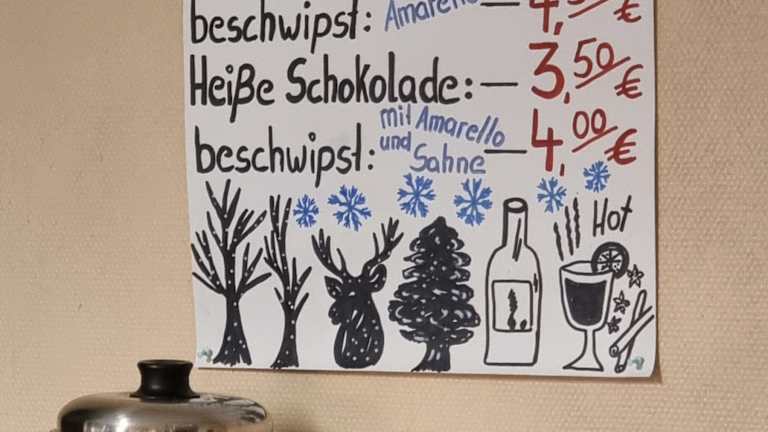 beschwipst: Amarello — 4,50 €
Heiße Schokolade: — 3,50 €
beschwipst: mit Amarello und Sahne — 4,00 €
Hot